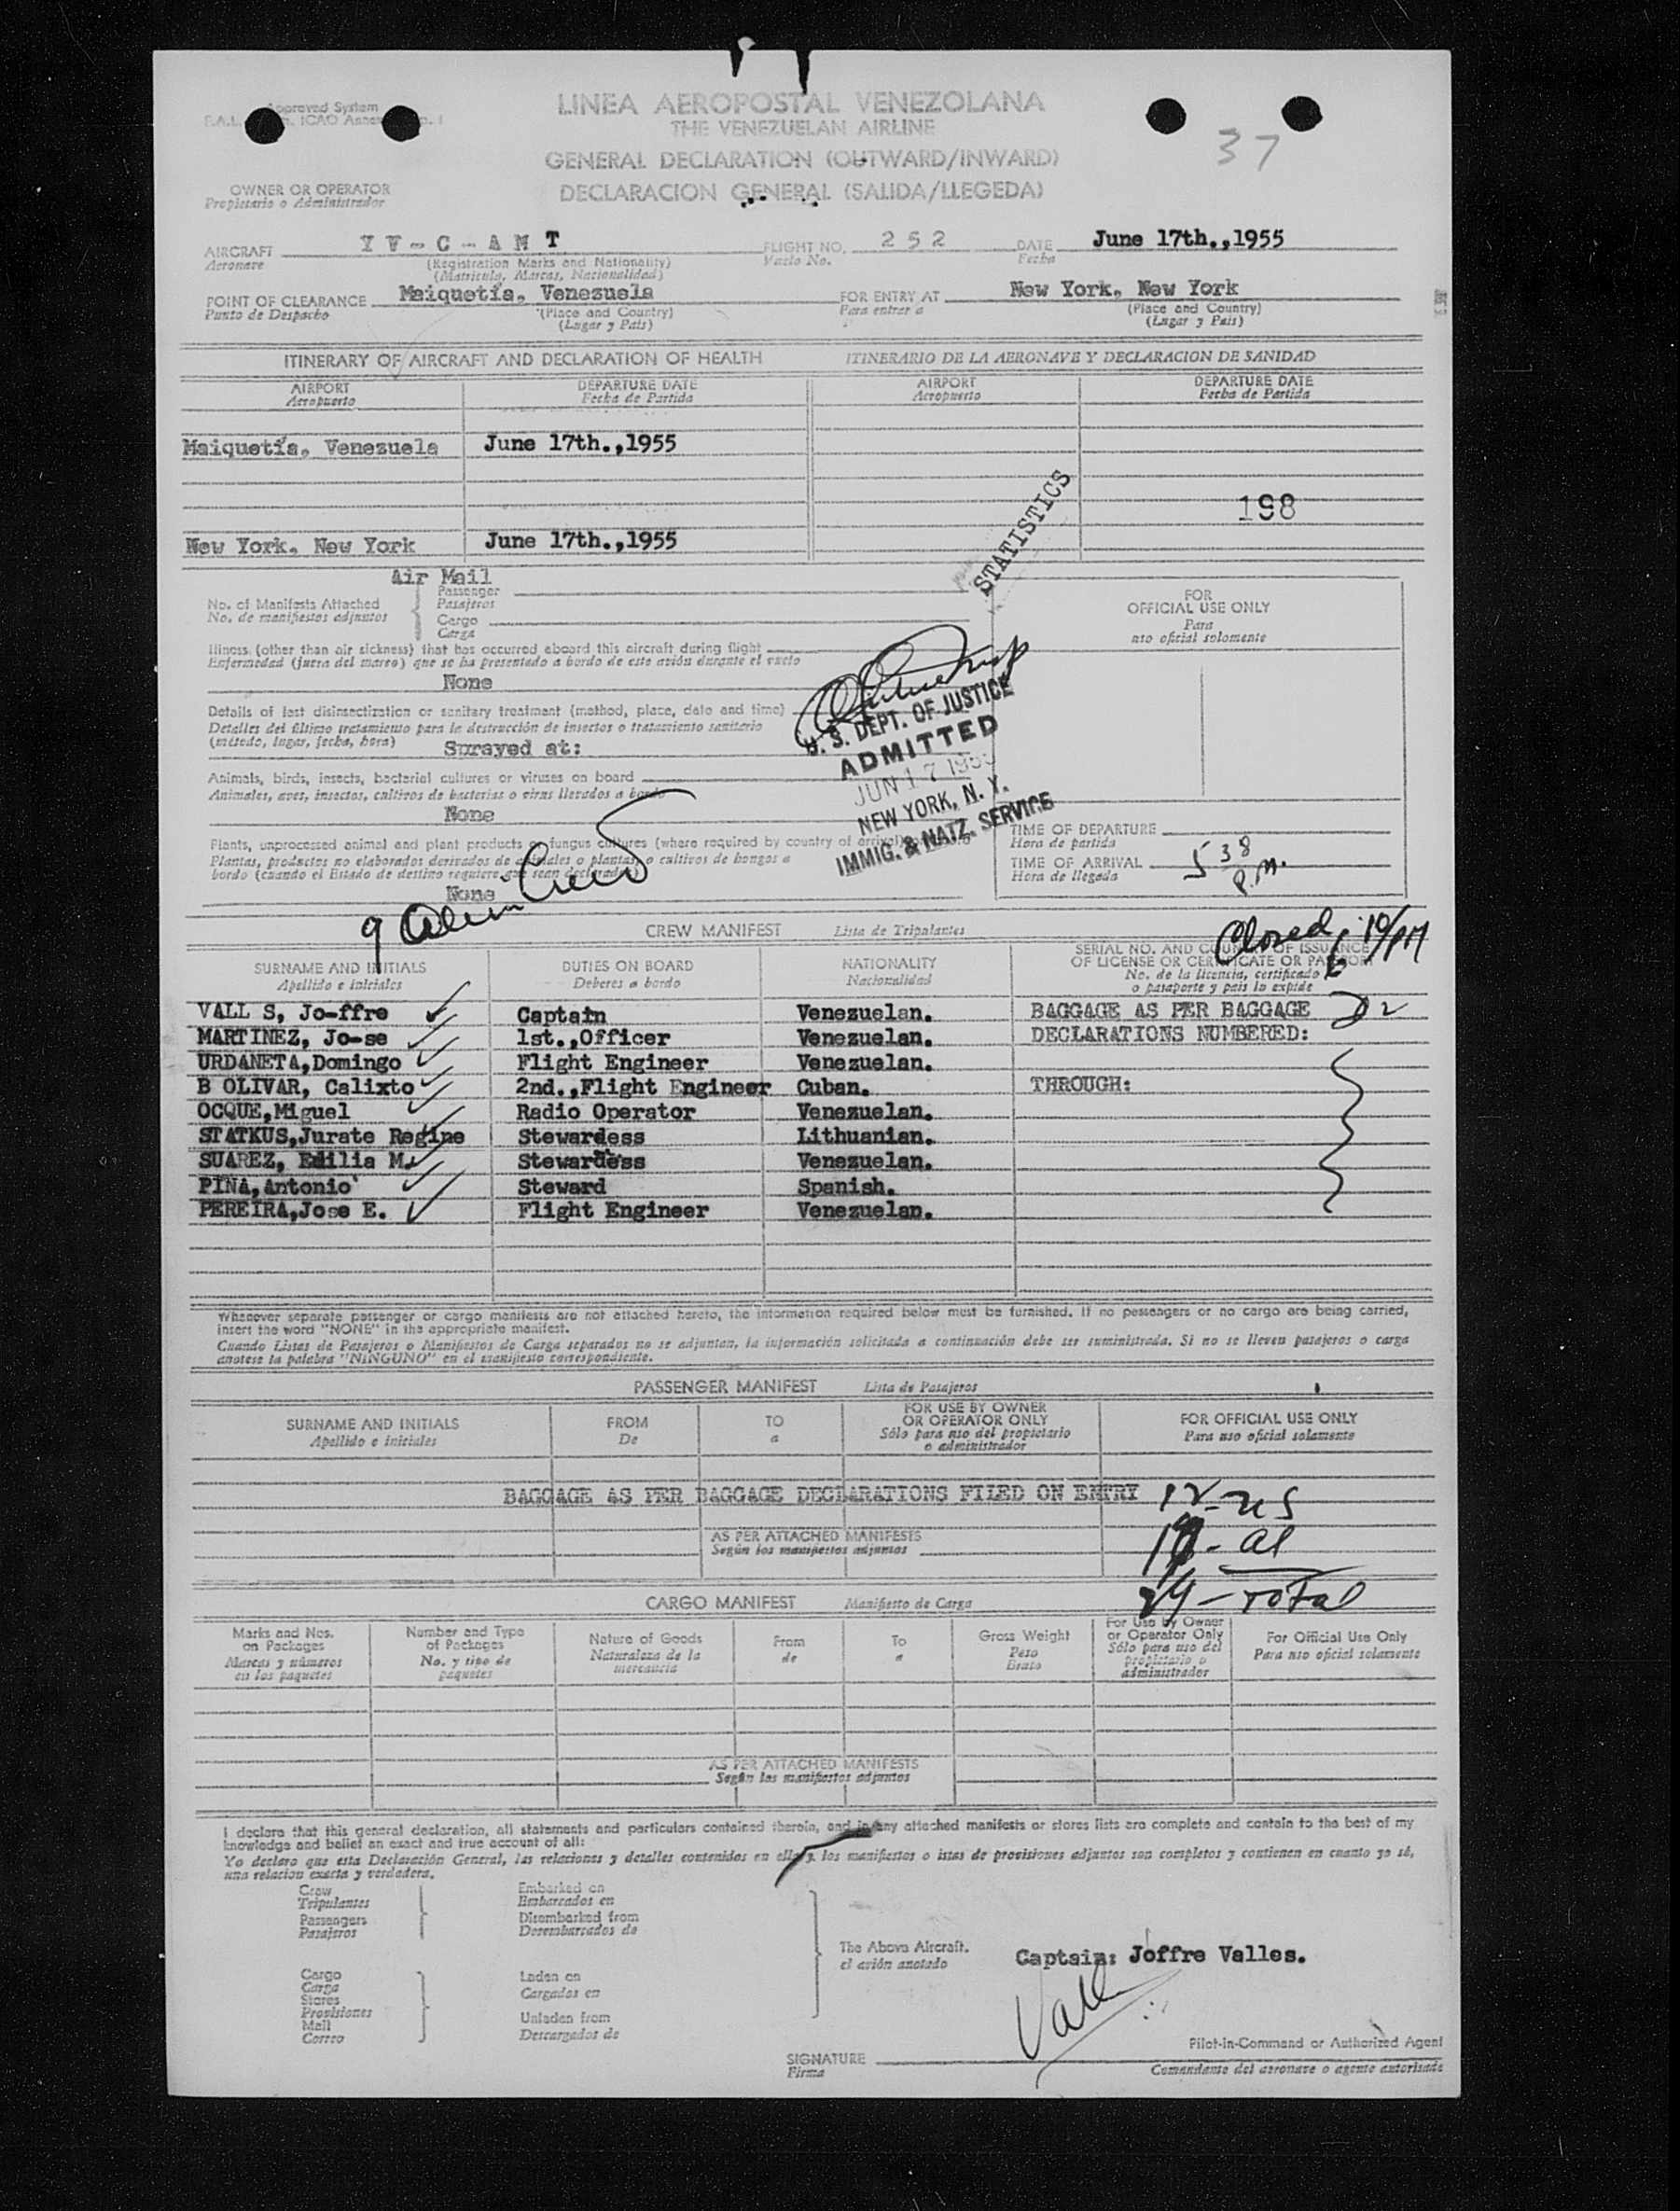 Approved System
LINEA AEROPOSTAL VENEZOLANA
THE VENEZUELAN AIRLINE
GENERAL DECLARATION (OUTWARD/INWARD)
DECLARACION GENERAL (SALIDA/LLEGEDA)
37
OWNER OR OPERATOR
Propietario o Administrador
AIRCRAFT Y V - C - A M T FLIGHT NO. 2 5 2 DATE June 17th.,1955
Aeronave (Registration Marks and Nationality) Vuelo No. Fecha
(Matricula, Marcas, Nacionalidad)
POINT OF CLEARANCE Maiquetía, Venezuela FOR ENTRY AT New York, New York
Punto de Despacho (Place and Country) Para entrar a (Place and Country)
(Lugar y País) (Lugar y País)
ITINERARY OF AIRCRAFT AND DECLARATION OF HEALTH ITINERARIO DE LA AERONAVE Y DECLARACION DE SANIDAD
AIRPORT DEPARTURE DATE AIRPORT DEPARTURE DATE
Aeropuerto Fecha de Partida Aeropuerto Fecha de Partida
Maiquetía, Venezuela June 17th.,1955
198
New York, New York June 17th.,1955
STATISTICS
Air Mail
No. of Manifests Attached Passenger
No. de manifiestos adjuntos Pasajeros
Cargo
Carga
FOR
OFFICIAL USE ONLY
Para
uso oficial solomente
Illness (other than air sickness) that has occurred aboard this aircraft during flight
Enfermedad (fuera del mareo) que se ha presentado a bordo de este avión durante el vuelo
None
Details of last disinsectization or sanitary treatment (method, place, date and time)
Detalles del último tratamiento para la destrucción de insectos o tratamiento sanitario
(método, lugar, fecha, hora) Sprayed at:
U. S. DEPT. OF JUSTICE
ADMITTED
JUN 17 1955
NEW YORK, N. Y.
IMMIG. & NATZ. SERVICE
Animals, birds, insects, bacterial cultures or viruses on board
Animales, aves, insectos, cultivos de bacterias o virus llevados a bordo
None
Plants, unprocessed animal and plant products or fungus cultures (where required by country of arrival)
Plantas, productos no elaborados derivados de animales o plantas o cultivos de hongos a
bordo (cuando el Estado de destino requiere que sean declarados)
None
TIME OF DEPARTURE
Hora de partida
TIME OF ARRIVAL 5 38 P.M.
Hora de llegada
9 Alien Crew
Closed 6:10/PM
CREW MANIFEST Lista de Tripulantes
SURNAME AND INITIALS DUTIES ON BOARD NATIONALITY SERIAL NO. AND COUNTRY OF ISSUANCE
OF LICENSE OR CERTIFICATE OR PASSPORT
Apellido e iniciales Deberes a bordo Nacionalidad No. de la licencia, certificado
o pasaporte y país lo expide
VALL S, Jo-ffre Captain Venezuelan. BAGGAGE AS PER BAGGAGE
MARTINEZ, Jo-se 1st.,Officer Venezuelan. DECLARATIONS NUMBERED:
URDANETA,Domingo Flight Engineer Venezuelan.
B OLIVAR, Calixto 2nd.,Flight Engineer Cuban. THROUGH:
OCQUE,Miguel Radio Operator Venezuelan.
STATKUS,Jurate Regine Stewardess Lithuanian.
SUAREZ, Edilia M. Stewardess Venezuelan.
PINA,Antonio Steward Spanish.
PEREIRA,Jose E. Flight Engineer Venezuelan.
Whenever separate passenger or cargo manifests are not attached hereto, the information required below must be furnished. If no passengers or no cargo are being carried,
insert the word "NONE" in the appropriate manifest.
Cuando Listas de Pasajeros o Manifiestos de Carga separados no se adjuntan, la información solicitada a continuación debe ser suministrada. Si no se lleven pasajeros o carga
anotese la palabra "NINGUNO" en el manifiesto correspondiente.
PASSENGER MANIFEST Lista de Pasajeros
SURNAME AND INITIALS FROM TO FOR USE BY OWNER
OR OPERATOR ONLY FOR OFFICIAL USE ONLY
Apellido e iniciales De a Sólo para uso del propietario
o administrador Para uso oficial solamente
BAGGAGE AS PER BAGGAGE DECLARATIONS FILED ON ENTRY 12-US
AS PER ATTACHED MANIFESTS
Según los manifiestos adjuntos
al
29-Total
CARGO MANIFEST Manifiesto de Carga
Marks and Nos.
on Packages
Marcas y números
en los paquetes
Number and Type
of Packages
No. y tipo de
paquetes
Nature of Goods
Naturaleza de la
mercancia
From
de
To
a
Gross Weight
Peso
Bruto
For Use by Owner
or Operator Only
Sólo para uso del
propietario o
administrador
For Official Use Only
Para uso oficial solamente
AS PER ATTACHED MANIFESTS
Según los manifiestos adjuntos
I declare that this general declaration, all statements and particulars contained therein, and in any attached manifests or stores lists are complete and contain to the best of my
knowledge and belief an exact and true account of all:
Yo declaro que esta Declaración General, las relaciones y detalles contenidos en ella y los manifiestos o istas de provisiones adjuntos son completos y contienen en cuanto yo sé,
una relacion exacta y verdadera.
Crew Embarked on
Tripulantes Embarcados en
Passengers Disembarked from
Pasajeros Desembarcados de
The Above Aircraft.
el avión anotado
Captain: Joffre Valles.
Cargo Laden on
Carga Cargados en
Stores
Provisiones
Mail Unladen from
Correo Descargados de
Pilot-in-Command or Authorized Agent
SIGNATURE
Firma Comandante del aeronave o agente autorisado